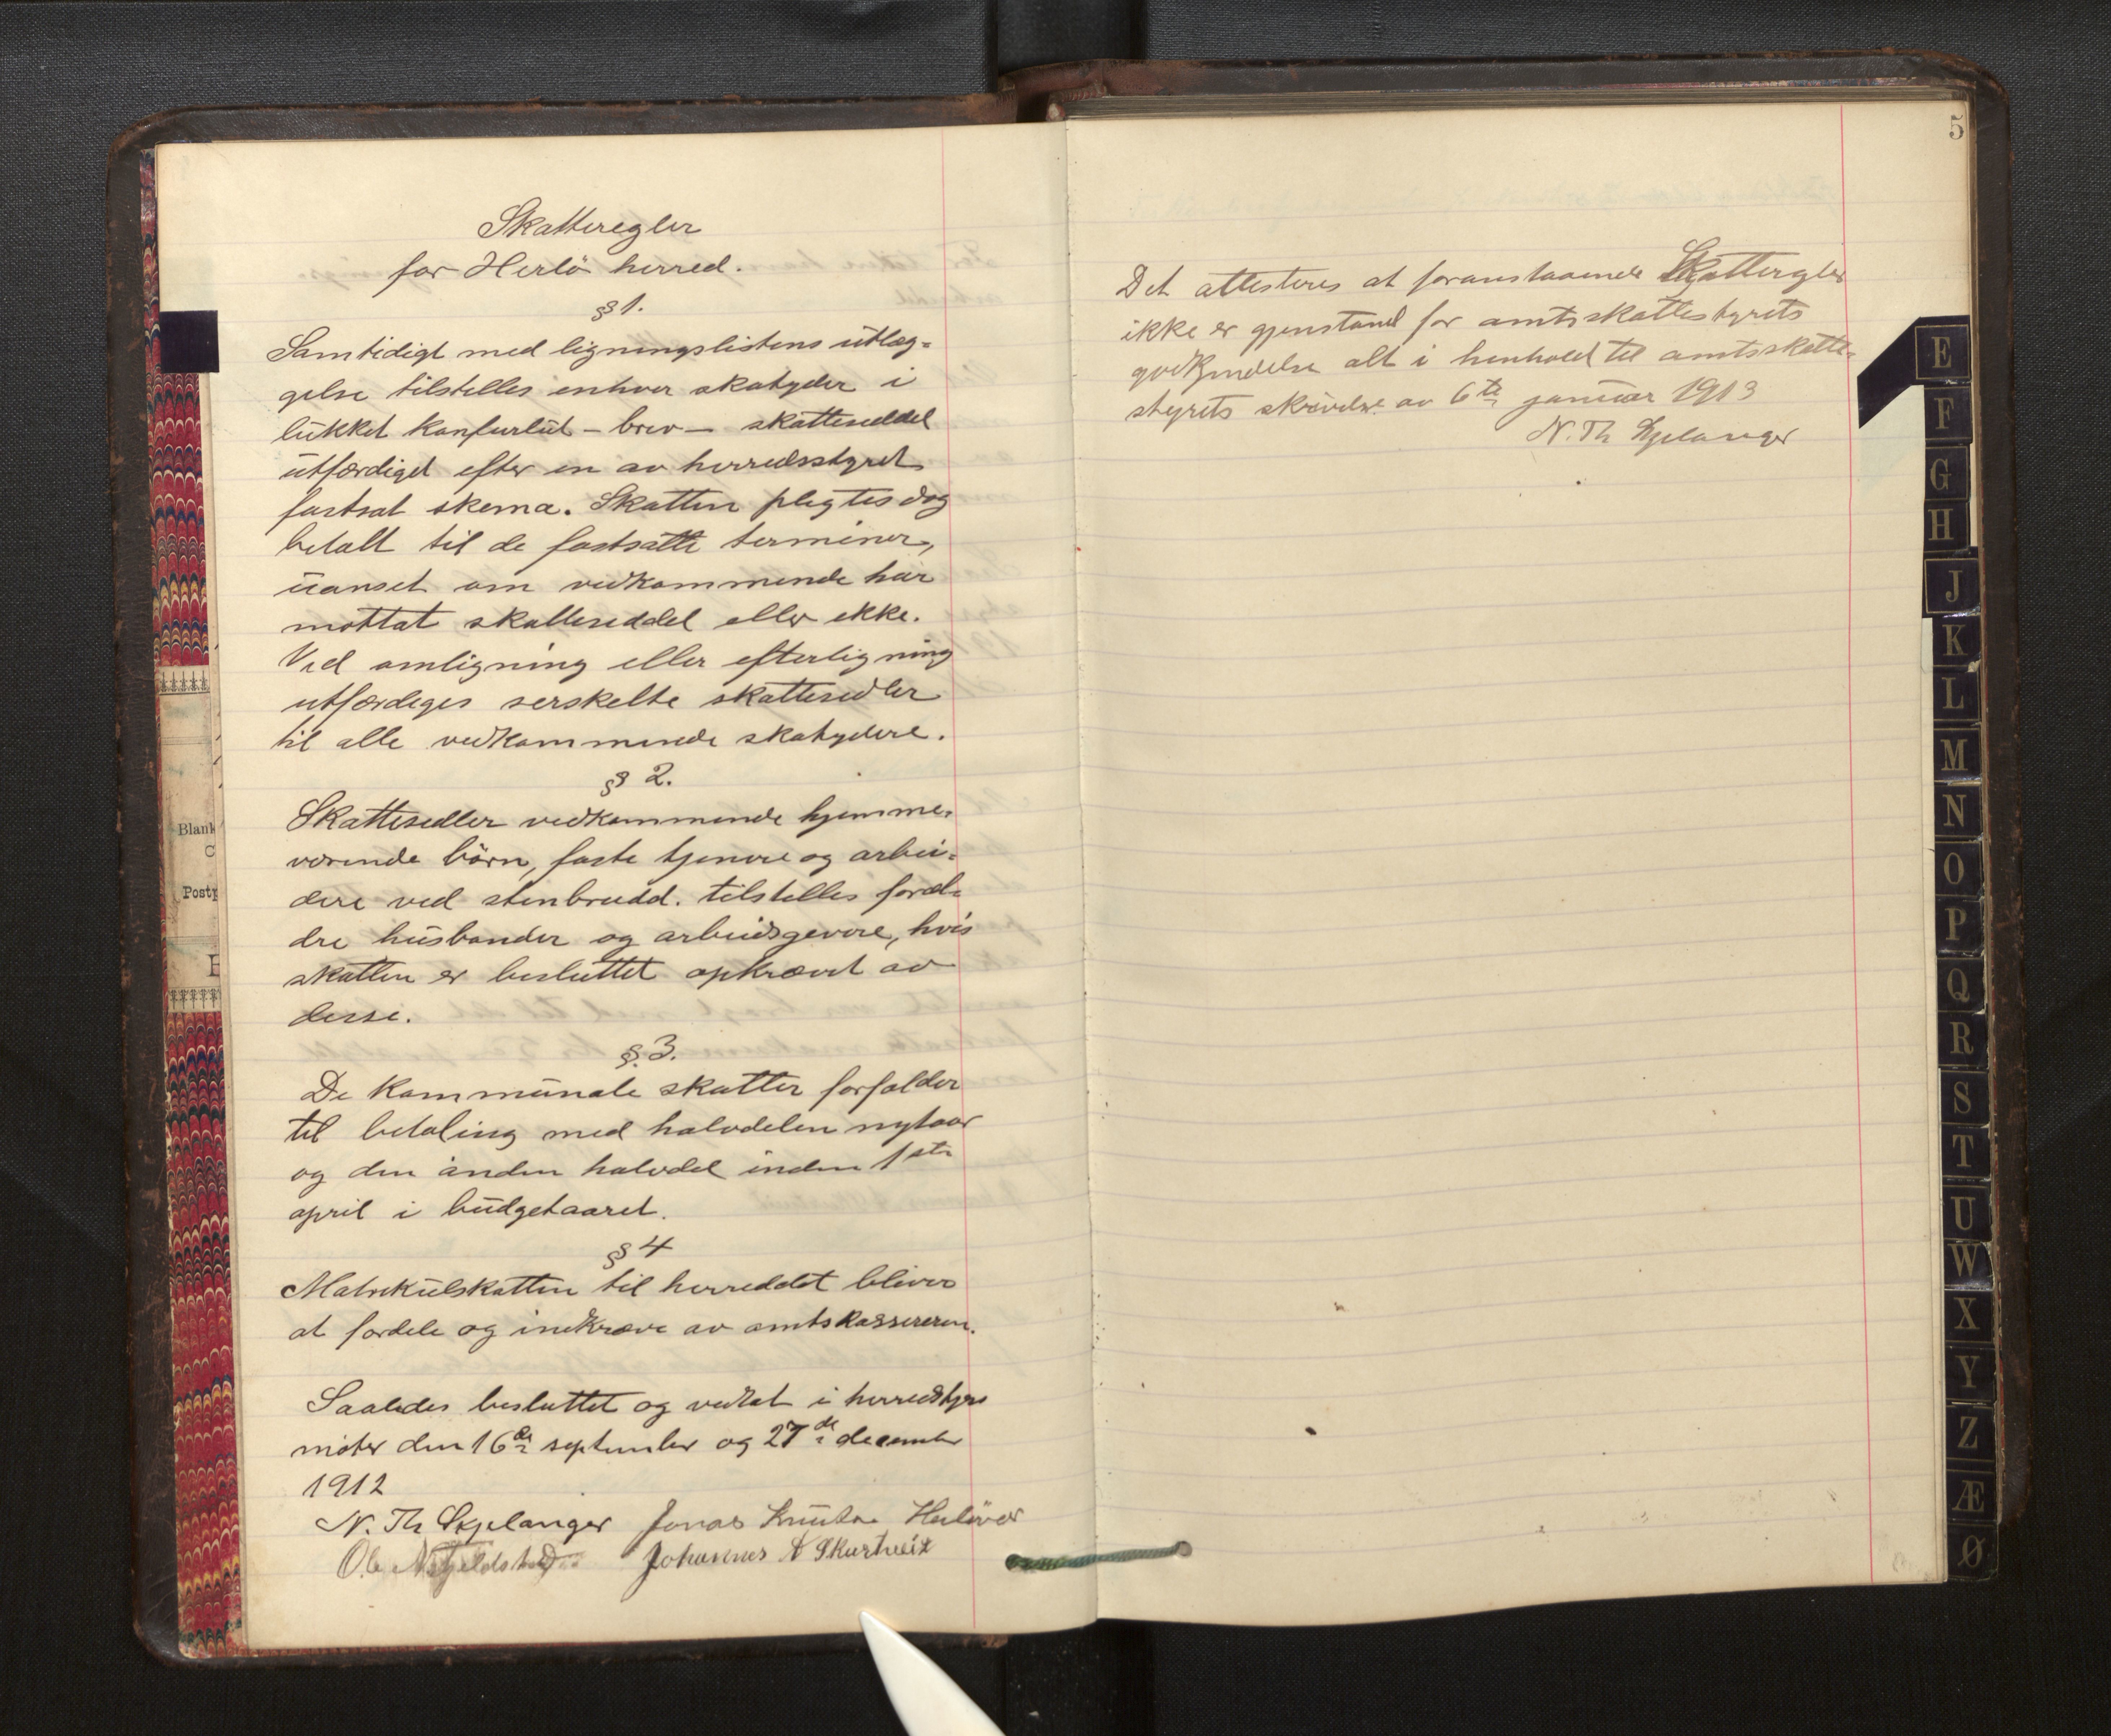 Skatteregler
for Herlö herred.
§ 1.
Samtidigt med ligningslistens utlæg-
gelse tilstilles enhver skatyder i
lukket konfurlut - brev - skatteseddel
utfærdiget efter en av herredsstyret
fastsat skema. Skatten pligtes dog
betalt til de fastsatte terminer,
uanset om vedkommende har
mottat skatteseddel eller ikke.
Ved omligning eller efterligning
utfærdiges serskelte skattesedler
til alle vedkommende skatydere.
§ 2.
Skattesedler vedkommende hjemme-
værende börn, faste tjenere og arbei-
dere ved stenbrudd. tilstilles foræl-
dre husbonder og arbeidsgevere, hvis
skatten er besluttet opkrævet av
disse.
§. 3.
De kommunale skatter forfalder
til betaling med halvdelen nytaar
og den anden halvdel inden 1ste
april i budgetaaret.
§ 4
Matrikulskatten til herreddet bliver
at fordele og indkræve av amtskassereren.
Saaledes besluttet og vedtat i herredstyrs
möter den 16de september og 27de december
1912
N. Th Skjelanger Jonas Knutsen Herlövær
Ole N Fjeldstad Johannes A Skurtveit
5
Det attesteres at foranstaaende Skatteregler
ikke er gjenstand for amtsskattestyrets
godkjendelse alt i henhold til amtsskatte-
styrets skrivelse av 6te januar 1913
N. Th Skjelanger
E
F
G
H
J
K
L
M
N
O
P
Q
R
S
T
U
W
X
Y
Z
Æ
Ø
Blank
Postp